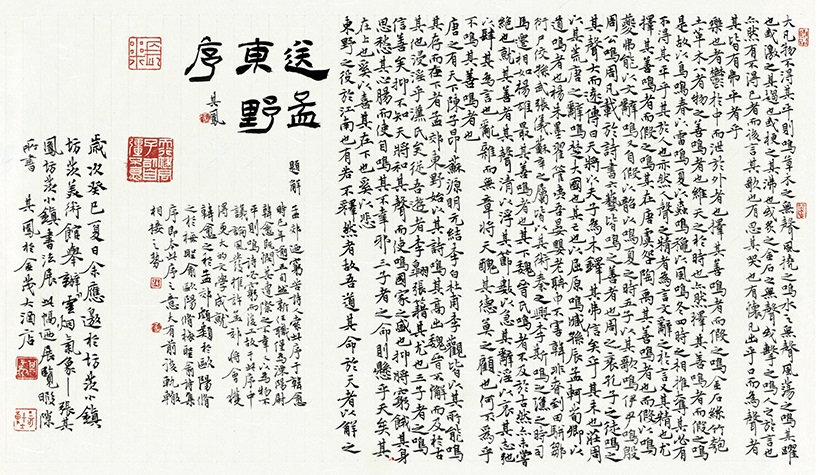 大凡物不得其平則鳴草木之無聲風撓之鳴水之無聲風蕩之鳴其躍
也或激之其趨也或梗之其沸也或炙之金石之無聲或擊之鳴人之於言也
亦然有不得已者而後言其歌也有思其哭也有懷凡出乎口而為聲者
其皆有弗平者乎
樂也者鬱於中而泄於外者也擇其善鳴者而假之鳴金石絲竹匏
土革木者物之善鳴者也維天之於時也亦然擇其善鳴者而假之鳴
是故以鳥鳴春以雷鳴夏以蟲鳴秋以風鳴冬四時之相推奪其必有
不得其平乎其於人也亦然人聲之精者為言文辭之於言又其精也尤
擇其善鳴者而假之鳴其在唐虞咎陶禹其善鳴者也而假以鳴
夔弗能以文辭鳴又自假以韶以鳴夏之時五子以其歌鳴伊尹鳴殷
周公鳴周凡載於詩書六藝皆鳴之善者也周之衰孔子之徒鳴之
其聲大而遠傳曰天將以夫子為木鐸其弗信矣乎其末也莊周
以其荒唐之辭鳴楚大國也其亡也以屈原鳴臧孫辰孟軻荀卿以
道鳴者也楊朱墨翟管夷吾晏嬰老聃申不害韓非眘到田駢鄒
衍尸佼孫武張儀蘇秦之屬皆以其術鳴秦之興李斯鳴之漢之時司
馬遷相如揚雄最其善鳴者也其下魏晉氏鳴者不及於古然亦未嘗
絕也就其善鳴者其聲清以浮其節數以急其辭淫以哀其志弛
以肆其為言也亂雜而無章將天醜其德莫之顧也何為乎
不鳴其善鳴者也
唐之有天下陳子昂蘇源明元結李白杜甫李觀皆以其所能鳴
其存而在下者孟郊東野始以其詩鳴其高出魏晉不懈而及於古
其他浸淫乎漢氏矣從吾遊者李翱張籍其尤也三子者之鳴
信善矣抑不知天將和其聲而使鳴國家之盛也抑將窮餓其身
思愁其心腸而使自鳴其不幸邪三子者之命則懸乎天矣其
在上也奚以喜其在下也奚以悲
東野之役於江南也有若不釋然者故吾道其命於天者以解之
送孟
東野
序
其鳳
題解
孟郊一迺窮苦詩人家此序于韓愈
時已年過五旬然新職僅為溧陽尉
韓愈既憫其遭際之事又以為物不
平則鳴詩必窮而後工故于此序中
議論風發推許孟郊將會獲
得更大的文學成就
韓愈之於孟郊頗類於歐陽脩
之於梅堯臣歐陽脩梅聖俞詩集
序即本此序之意大有前後軌轍
相接之勢
歲次癸巳夏日余應邀於坊茨小鎮
坊茨美術館舉辦雲烟氣象—張其
鳳坊茨小鎮書法展此幅迺展覽暇隙
所書 其鳳於金茂大酒店